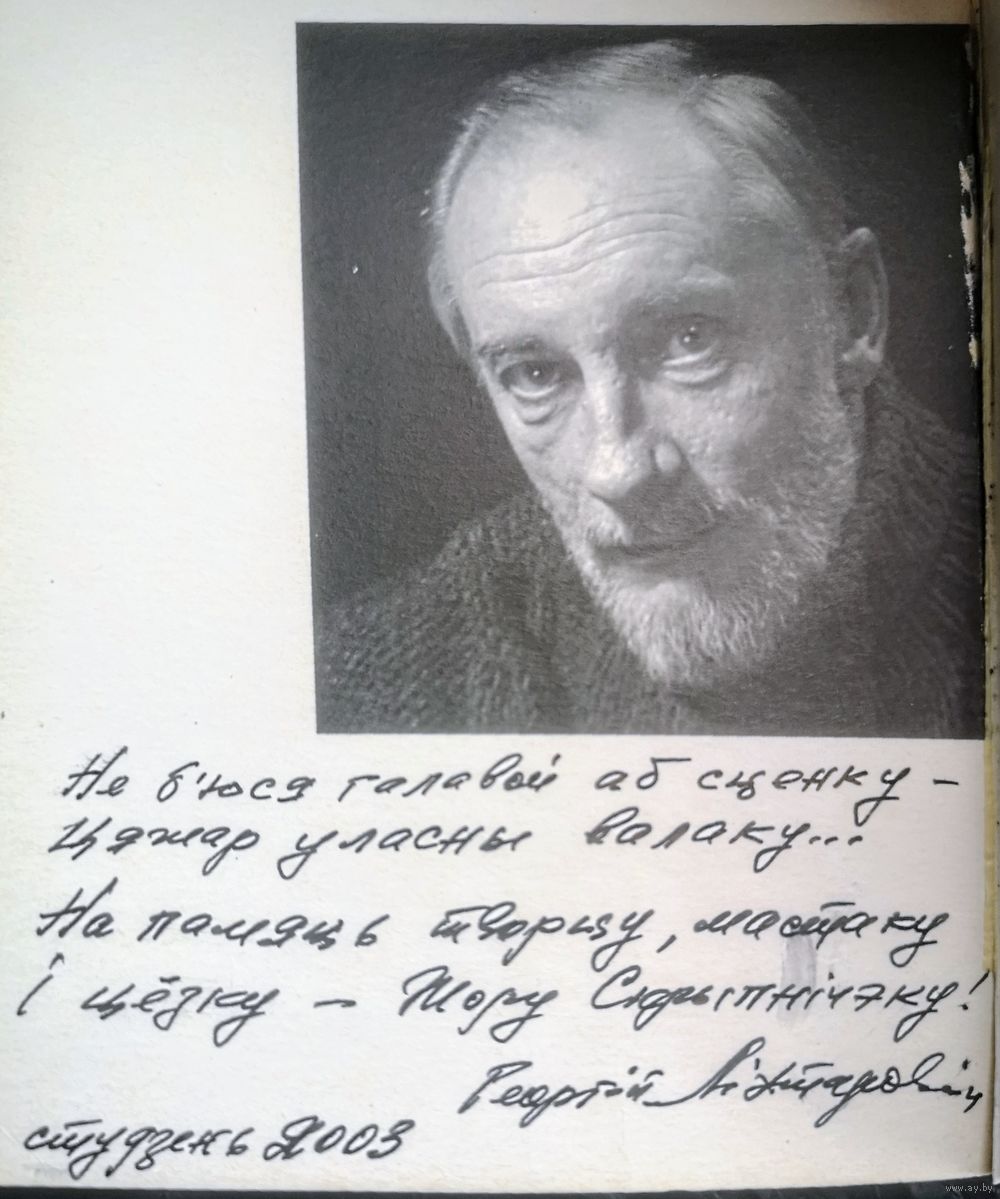 Не б'юся галавой аб сценку –
Цяжар уласны валаку...
На памяць творцу, мастаку
і цёзку – Жору Скрыпнічэнку!
Георгій Ліхтаровіч
студзень 2003
www.ay.by